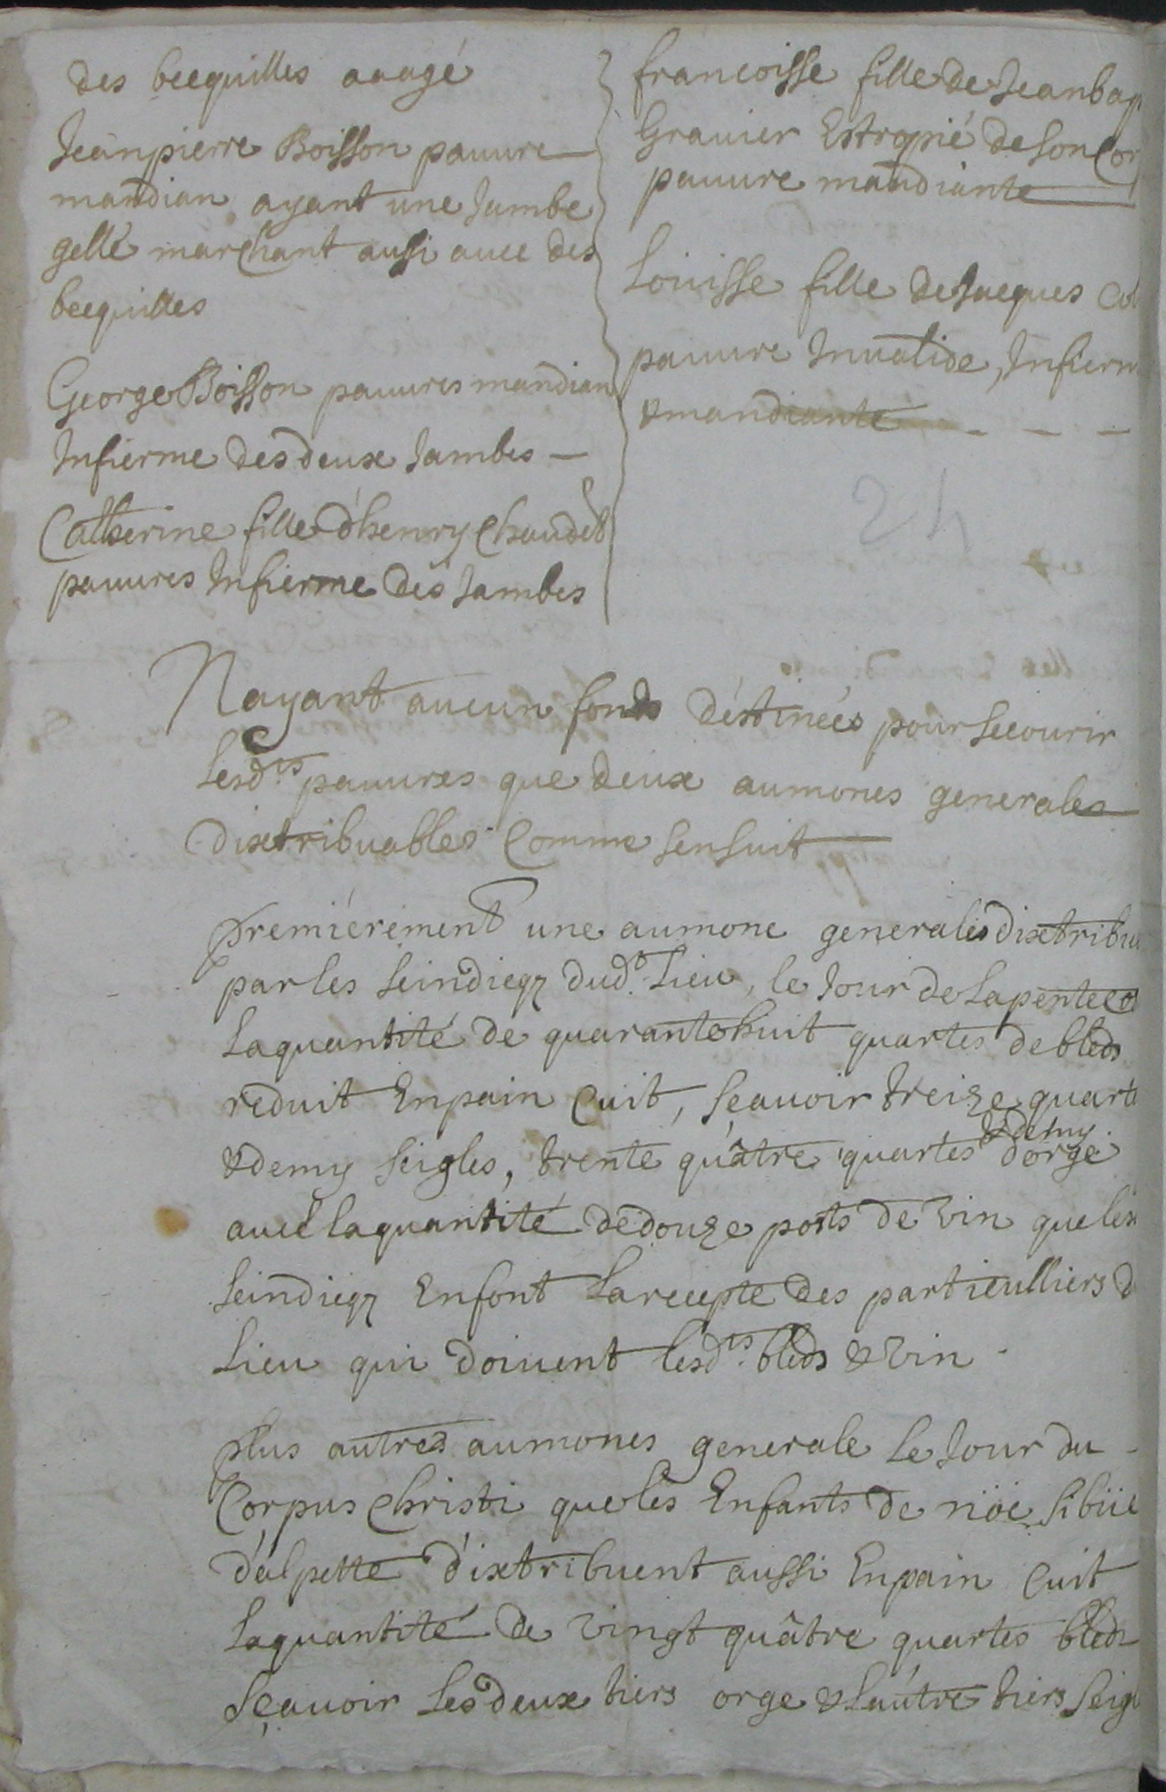 des becquilles aaagé
Jeanpierre Boisson pauure
mandian ayant une Jambe
gellé marchant aussi auec des
becquilles
George Boisson pauures mandian
Infierme des deux Jambes —
Catherine fille d'henry Chaudet
pauures Infierme des Jambes
francoisse fille de Jeanbap
Grauier Estropié de son Cor
pauure mandiante
Louisse fille de Jacques
pauure Inualide, Infierm
& mandiante - - -
24
Nayant aucun fonds déstinées pour secourir
Lesdts pauures que deux aumones generales
distribuables Comme sensuit
premiérement une aumone generales distribu
par les seindicqz dudt Lieu, le Jour de Lapenteco
Laquantité de quarantehuit quartes de bleds
reduit Enpain Cuit, sçauoir treize quarte
& demy seigles, trente quâtre quartes & demy d'orge
auec laquantité de douze pots de vin que les
seindicqz Enfont Larecepte des particulliers d
Lieu qui doiuent lesdts bleds & vin
plus autres aumones generale Le Jour du
Corpus Christi que les Enfants de nöé sibüe
d'alpette distribuent aussi Enpain Cuit
Laquantité de vingt quâtre quartes bleds
sçauoir Les deux tiers orge & Lautre tiers seig